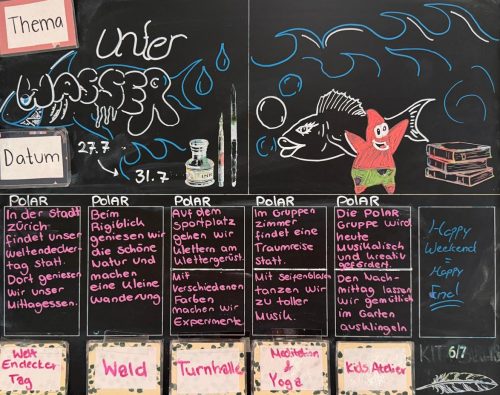 Thema
unter
WASSER
Datum
27.7
31.7
POLAR
In der Stadt
zürich
findet unser
weltendecker-
tag statt.
Dort geniesen
wir unser
Mittagessen.
POLAR
Beim
Rigiblick
geniesen wir
die schöne
Natur und
machen
eine kleine
Wanderung
POLAR
Auf dem
Sportplatz
gehen wir
klettern am
Klettergerüst.
Mit
verschiedenen
Farben
machen wir
Experimente.
POLAR
Im Gruppen
zimmer
findet eine
Traumreise
statt.
Mit Seifenblasen
tanzen wir
zu toller
Musik.
POLAR
Die POLAR
Gruppe wird
heute
Musikalisch
und kreativ
gefördert.
Den Nach-
mittag lassen
wir gemütlich
im Garten
ausklingeln
Happy
Weekend
=
Happy
End!
Welt
Endecker
Tag
Wald
Turnhalle
Meditation
&
Yoga
Kids Atelier
KIT 6/7